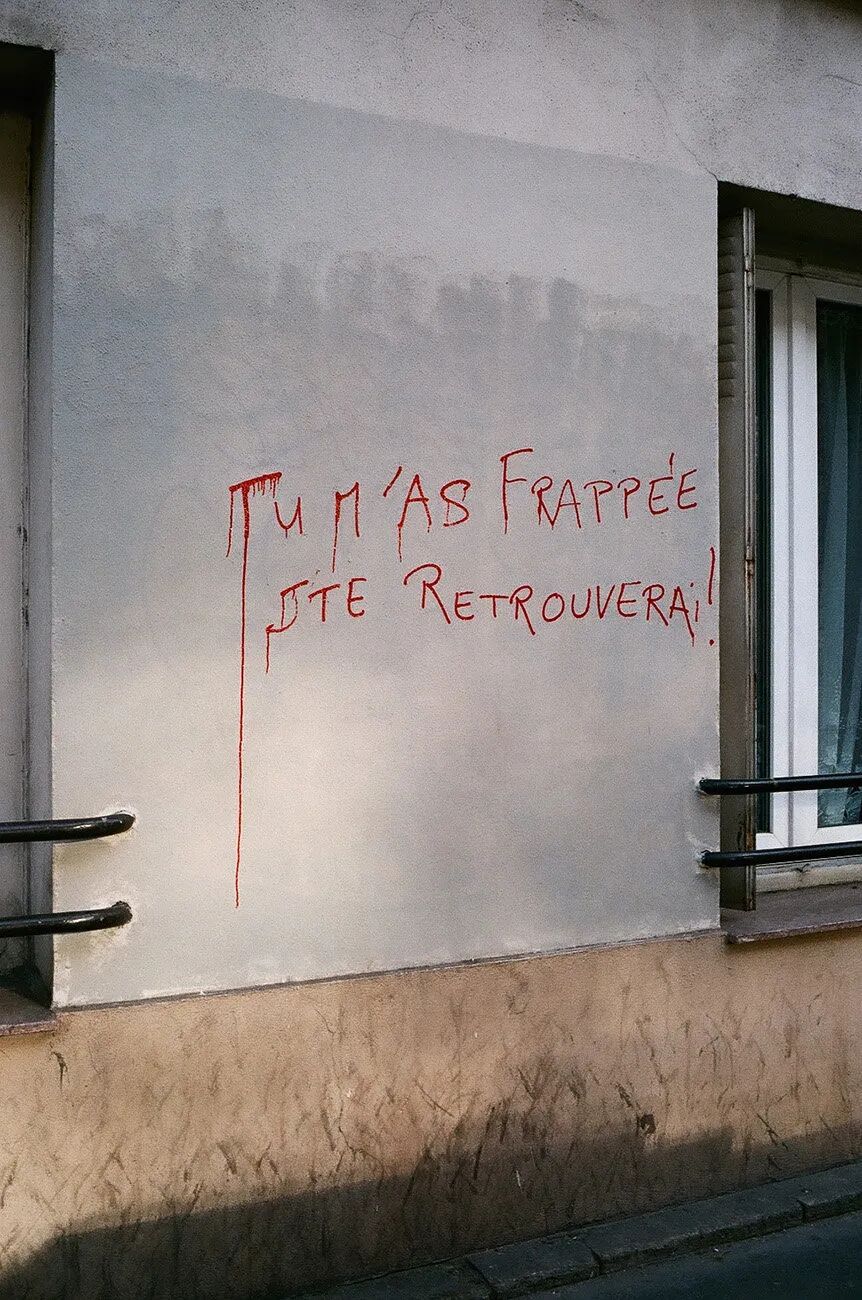 Tu m'as Frappée
J'te Retrouverai!